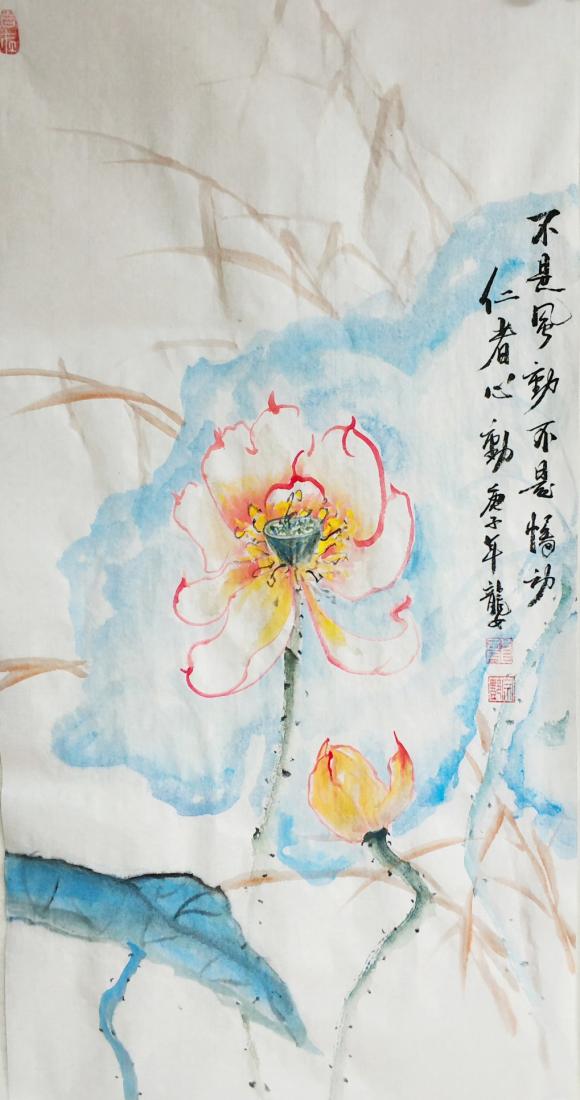 不是風動不是憣动
仁者心動庚子年龔